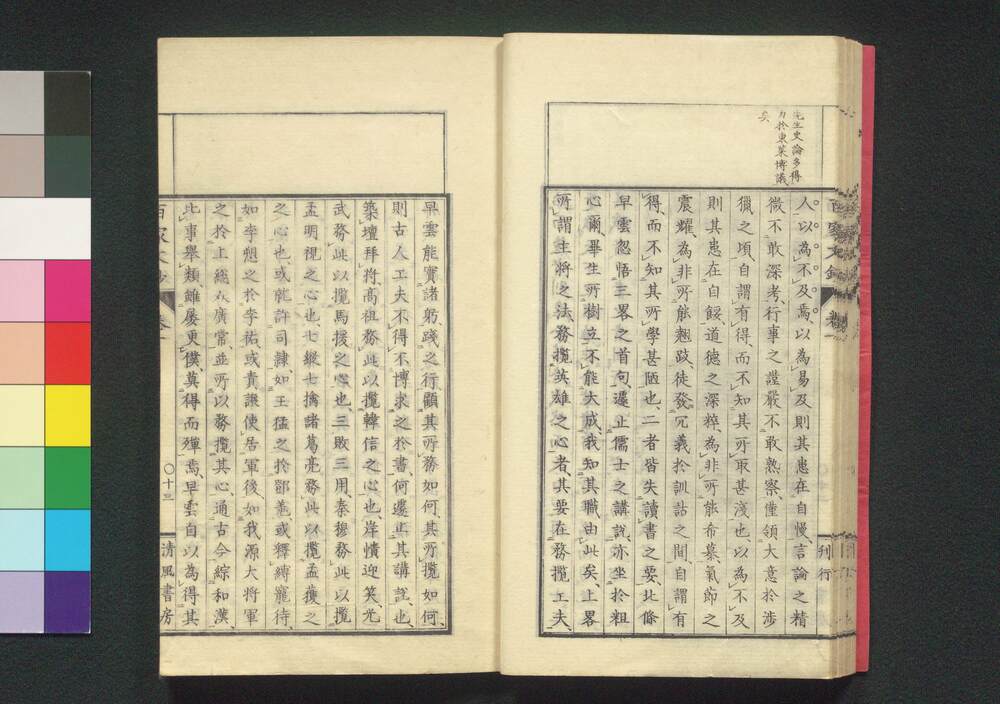 先生史論多得
力於東萊博議
矣
刊行
人以為不及焉以為易及則其患在自慢言論之精
微不敢深考行事之謹嚴不敢熟察僅領大意於涉
獵之頃自謂有得而不知其所取甚淺也以為不及
則其患在自餒道德之深粹為非所能希慕氣節之
震耀為非所能翹跂徒發冗義於訓詁之間自謂有
得而不知其所學甚陋也二者皆失讀書之要北條
早雲忽悟三畧之首句遽止儒士之講說亦坐於粗
心爾畢生所樹立不能大成我知其職由此矣上畧
所謂主將之法務攬英雄之心者其要在務攬工夫
早雲能實諸躬踐之行顧其所務如何其所攬如何
則古人工夫不得不博求之於書何遽止其講說也
築壇拜將高祖務此以攬韓信之心也岸幘迎笑光
武務此以攬馬援之心也三敗三用秦穆務此以攬
孟明視之心也七縱七擒諸葛亮務此以攬孟獲之
之心也或就許司隷如王猛之於鄧羗或釋縛寵待
如李愬之於李祐或責讓使居軍後如我源大將軍
之於上總介廣常並所以務攬其心通古今綜和漢
比事舉類雖屡更僕莫得而殫焉早雲自以為得其
百家文鈔
卷一
〇十三
清風書房